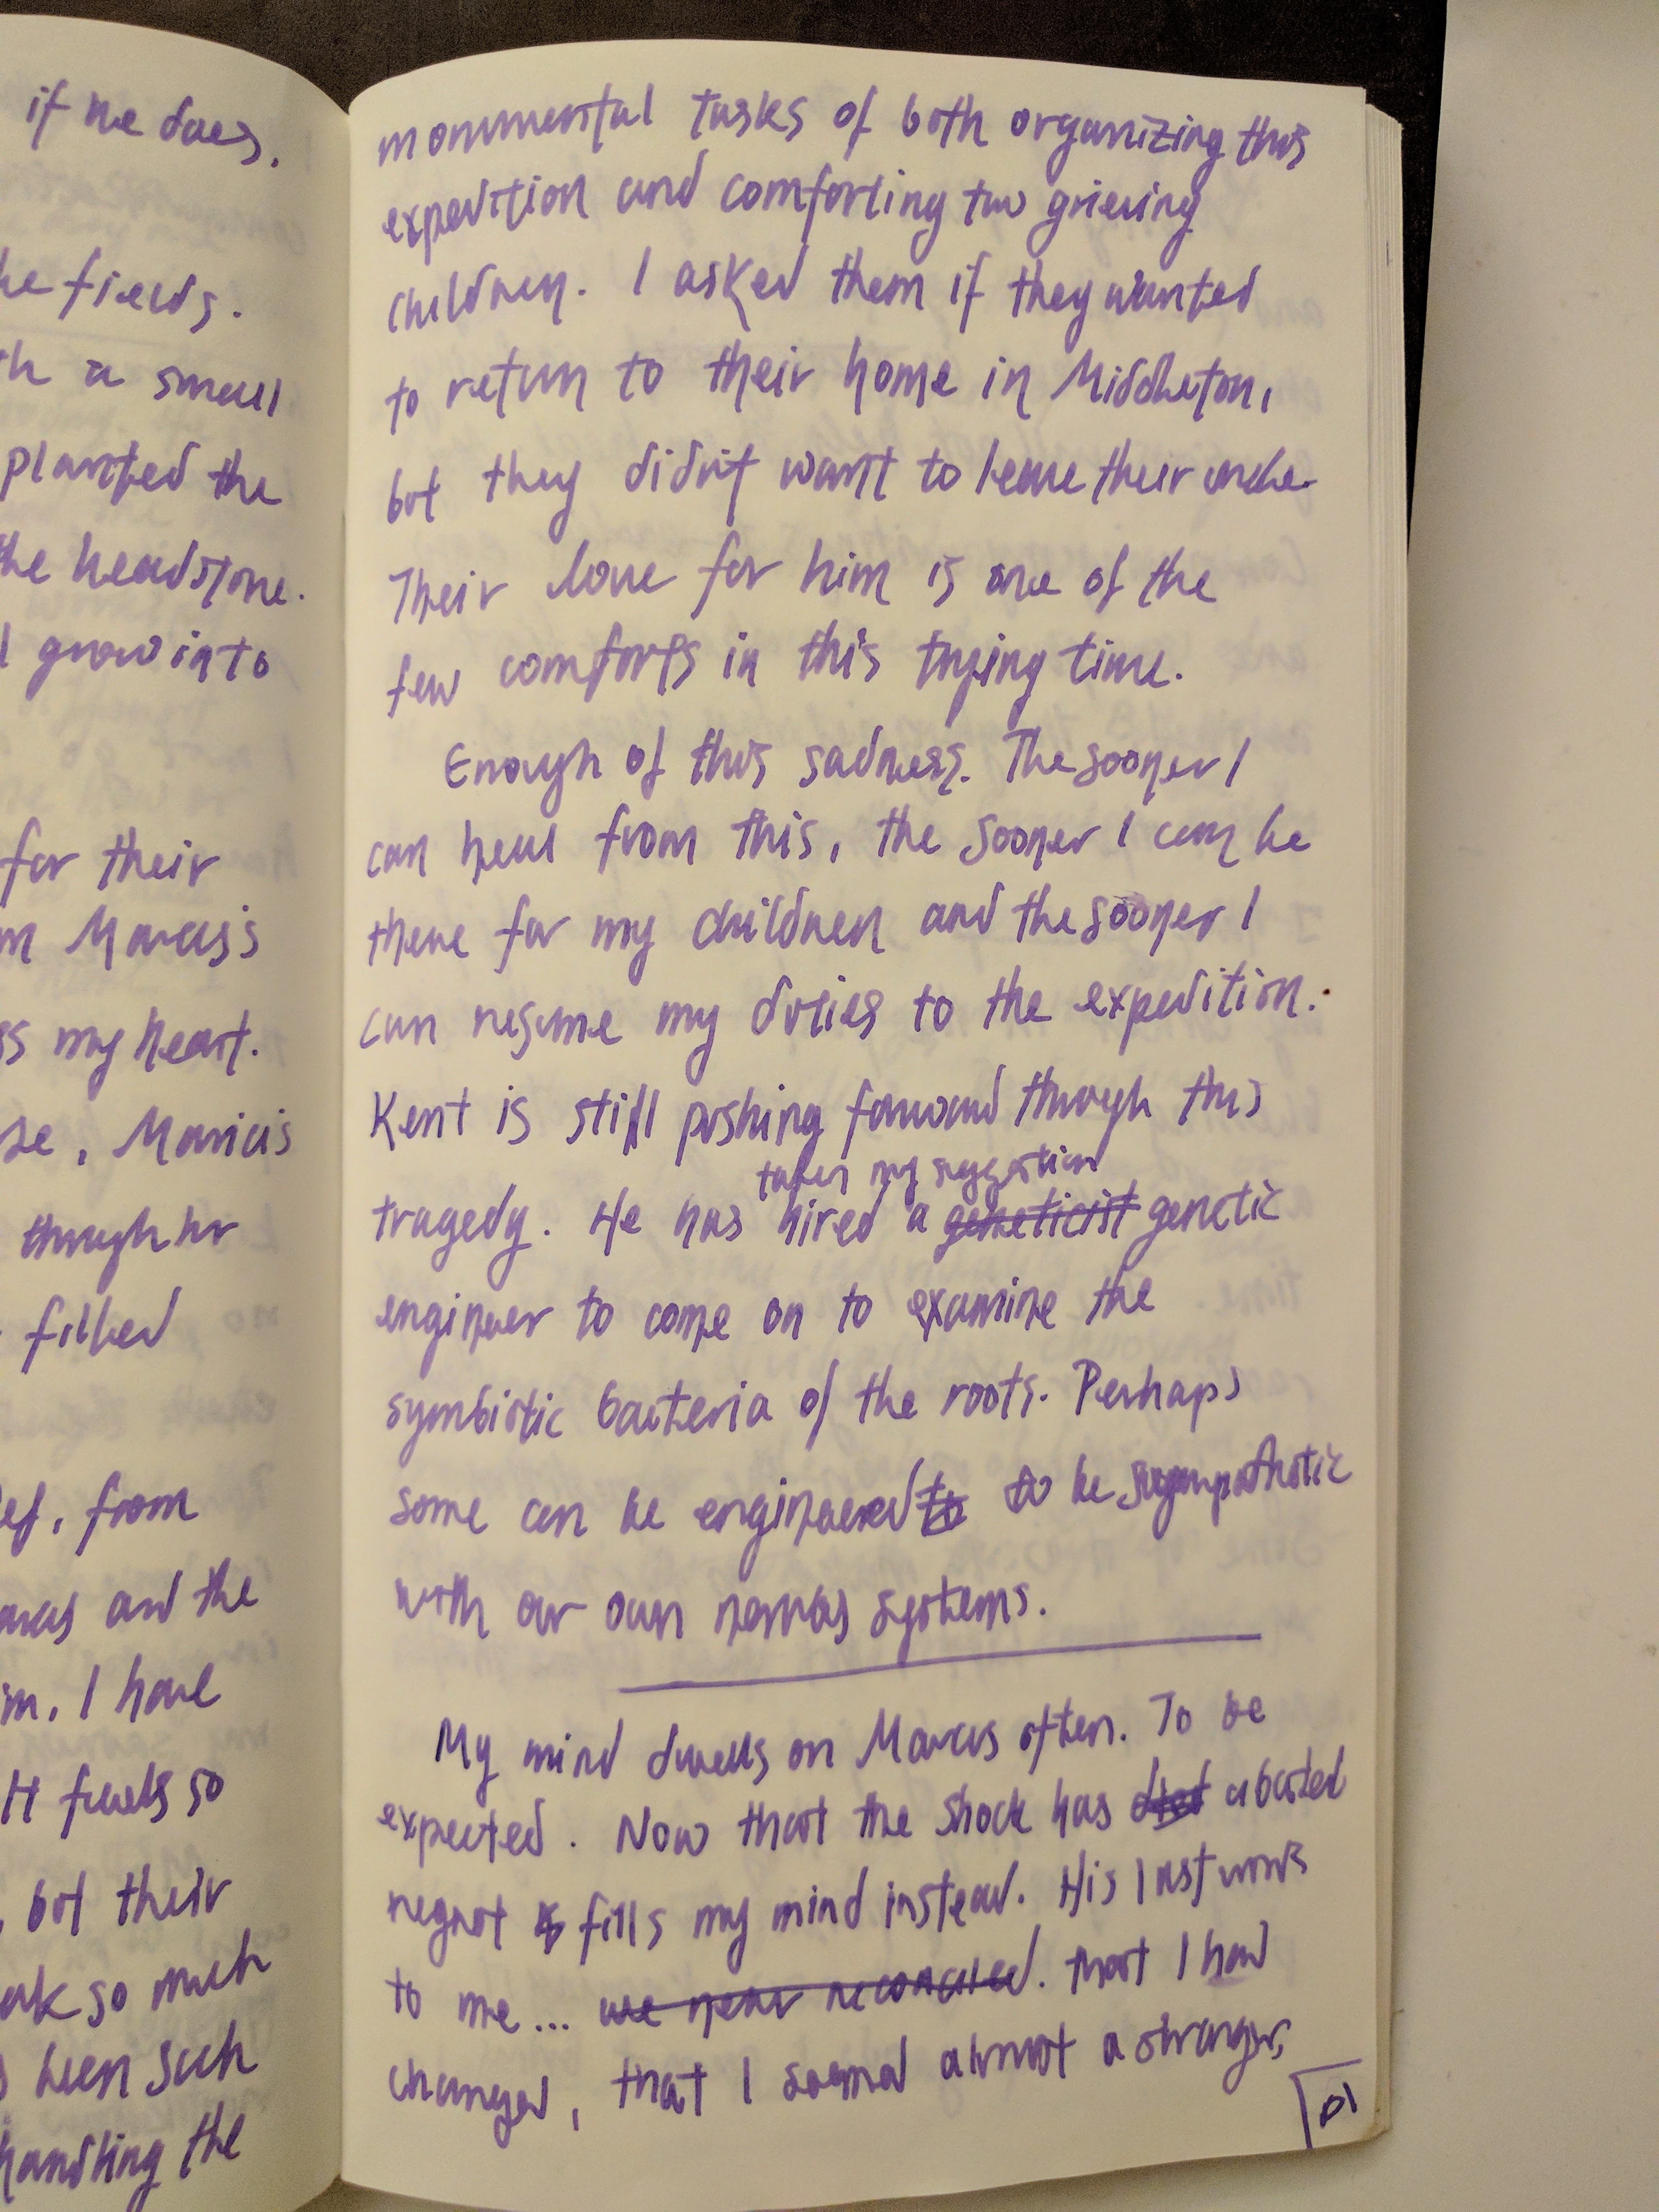 if he does.
he fields.
th a small
planted the
the headstone.
l grow into
for their
m Marcus's
ss my heart.
se, Marcus
though his
filled
ef, from
arcus and the
im. I have
It feels so
, but their
ak so much
s been such
handling the
monumental tasks of both organizing this
expedition and comforting two grieving
children. I asked them if they wanted
to return to their home in Middleton,
but they didn't want to leave their uncle.
Their love for him is one of the
few comforts in this trying time.
Enough of this sadness. The sooner I
can heal from this, the sooner I can be
there for my children and the sooner I
can resume my duties to the expedition.
Kent is still pushing forward through this
taken my suggestion and
tragedy. He has hired a geneticist genetic
engineer to come on to examine the
symbiotic bacteria of the roots. Perhaps
some can be engineered to to be sympathetic
with our own nervous systems.
My mind dwells on Marcus often. To be
expected. Now that the shock has abated
regret is fills my mind instead. His last words
to me... we never reconciled. that I had
changed, that I seemed almost a stranger,